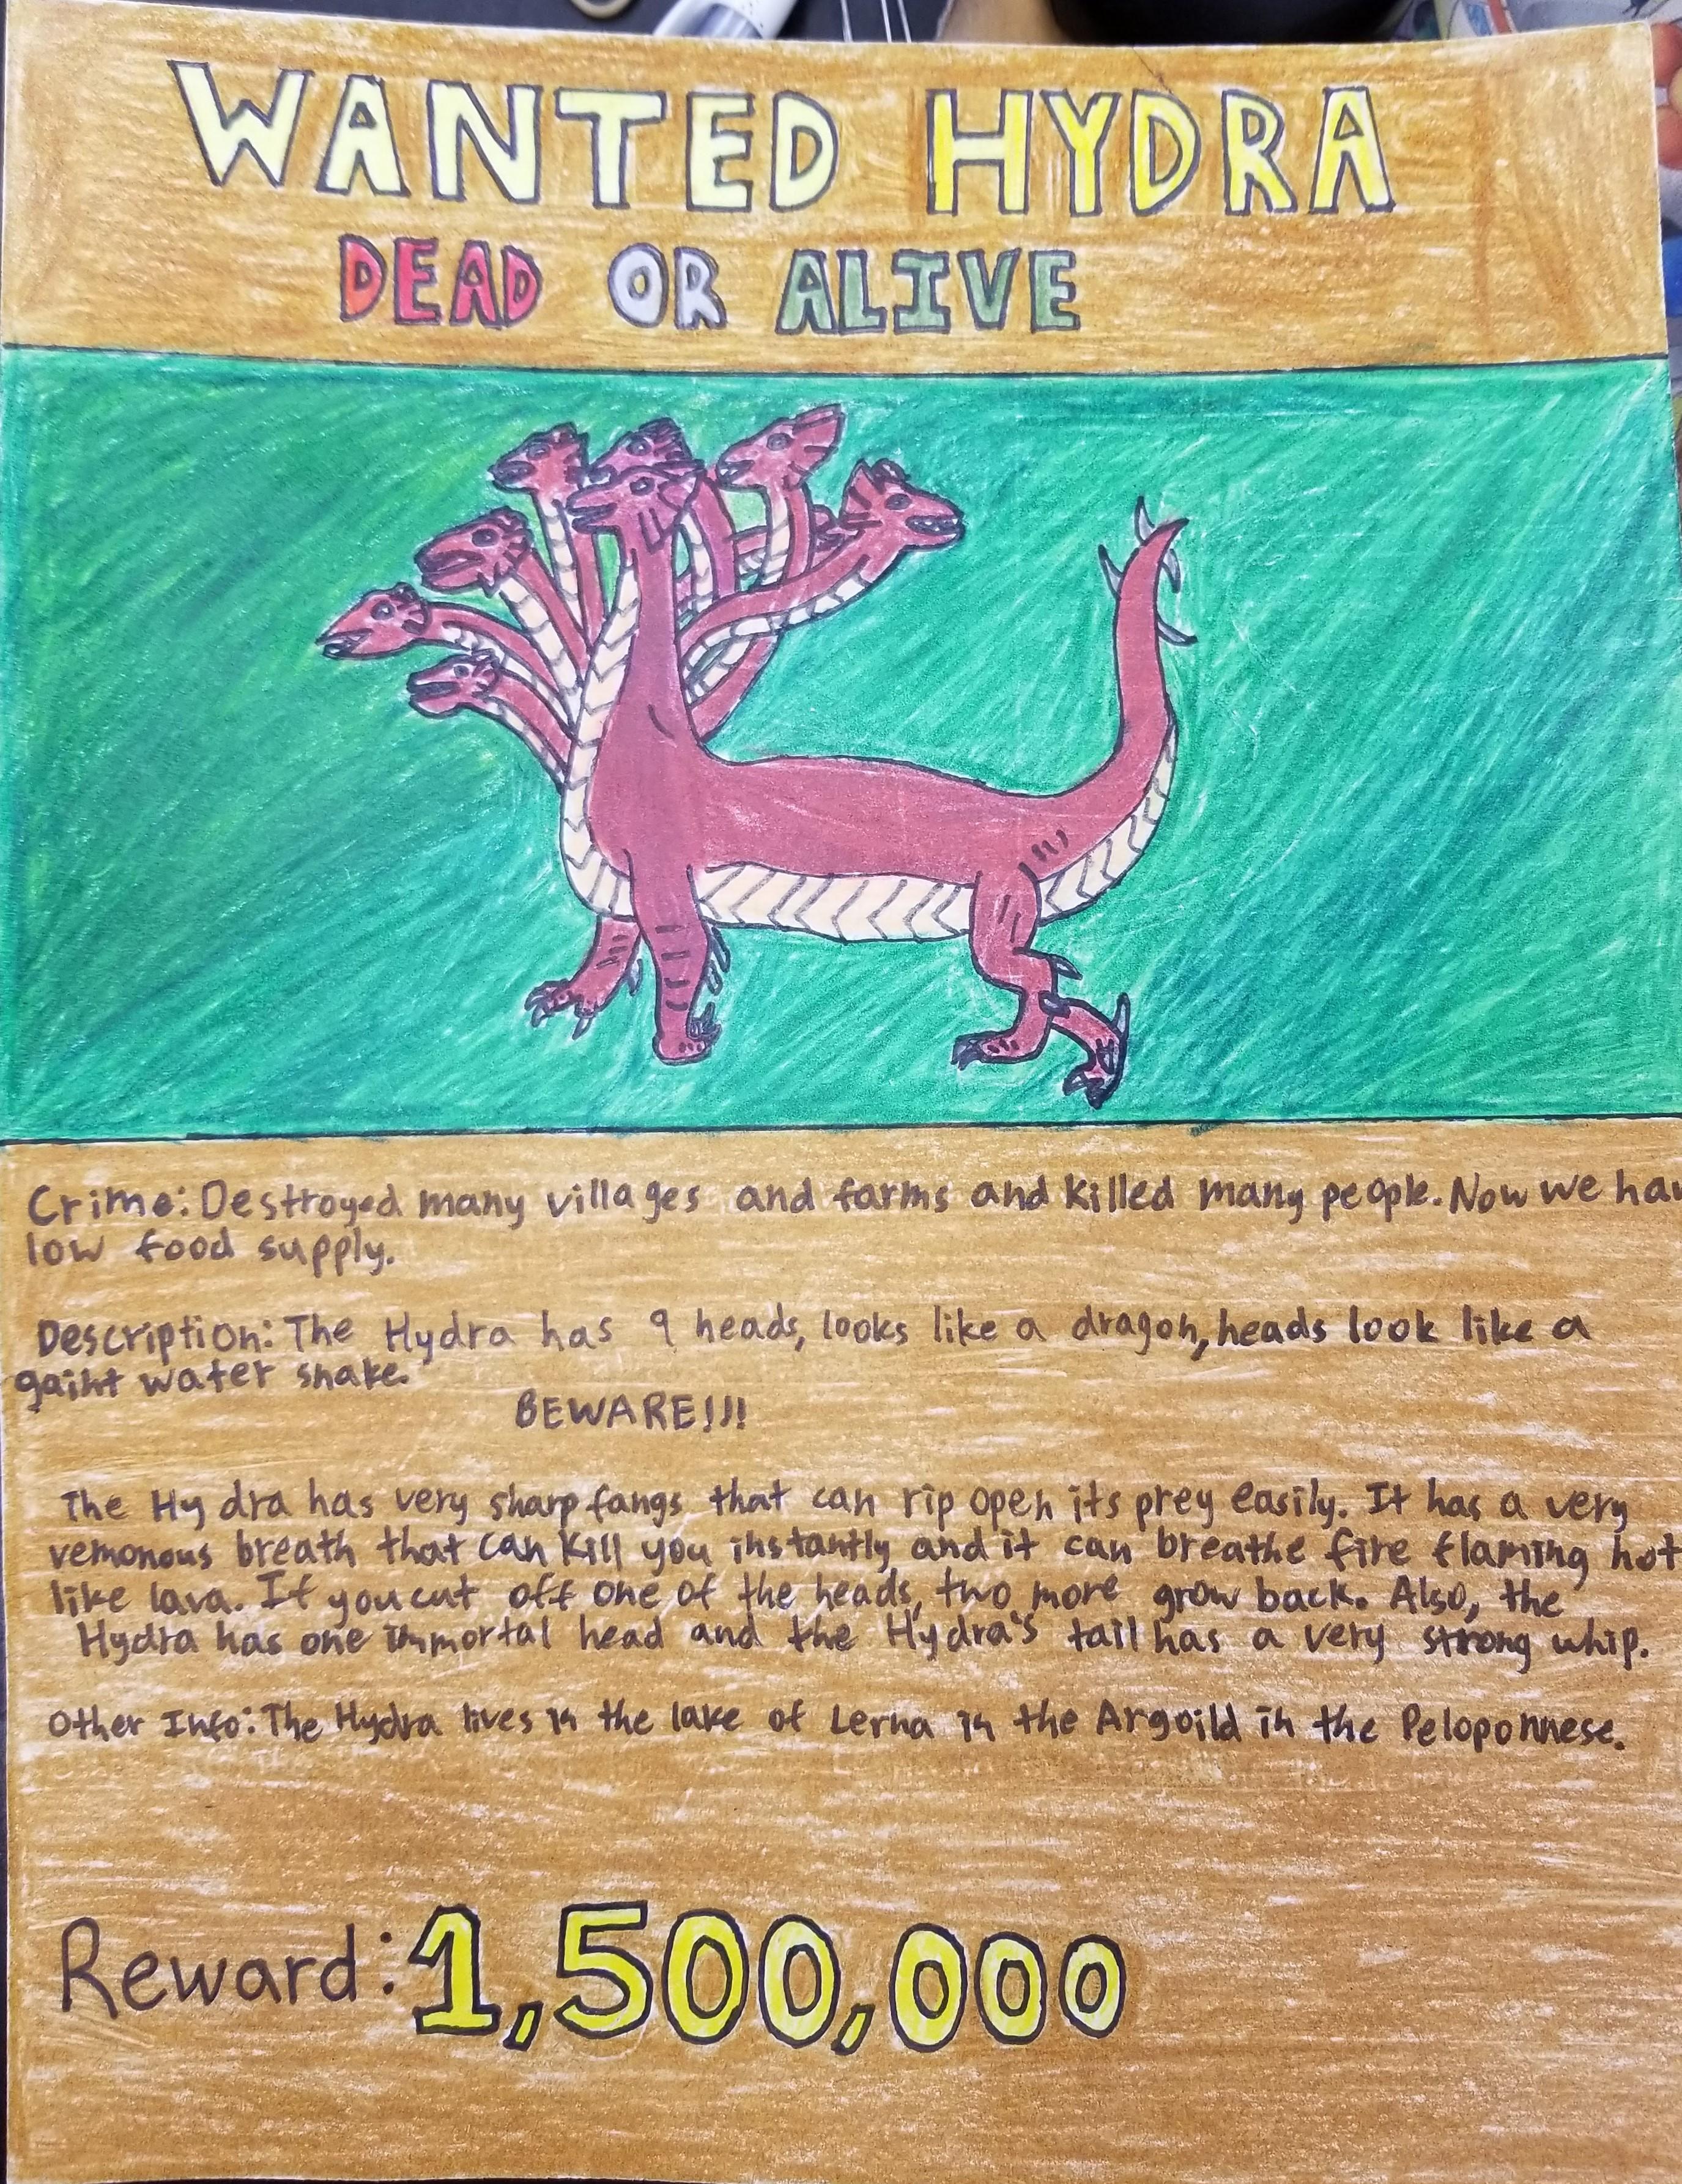 WANTED HYDRA
DEAD OR ALIVE
Crime: Destroyed many villages and farms and killed many people. Now we hav
low food supply.
Description: The Hydra has 9 heads, looks like a dragon, heads look like a
gaint water snake.
BEWARE!!!
The Hydra has very sharp fangs that can rip open its prey easily. It has a very
vemonous breath that can kill you instantly and it can breathe fire flaming hot
like lava. If you cut off one of the heads, two more grow back. Also, the
Hydra has one immortal head and the Hydra's tail has a very strong whip.
Other Info: The Hydra lives in the lake of Lerna in the Argoild in the Peloponnese.
Reward: 1,500,000